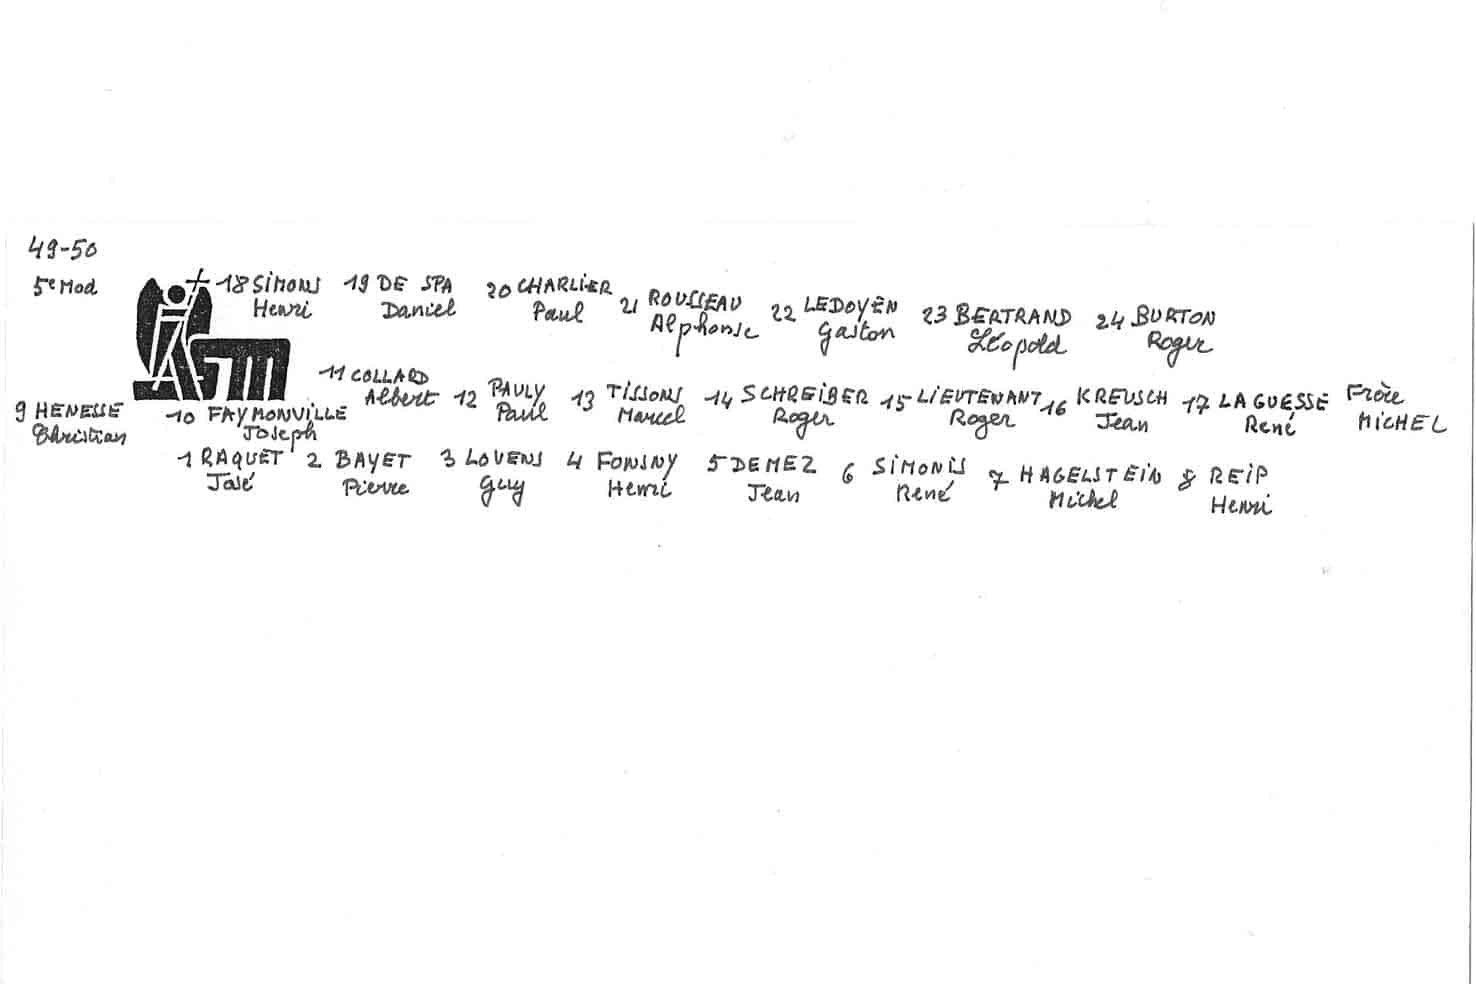 49-50
5e Mod
18 SIMONS 19 DE SPA 20 CHARLIER 21 ROUSSEAU 22 LEDOYEN 23 BERTRAND 24 BURTON
Henri Daniel Paul Alphonse Gaston Léopold Roger
9 HENESSE 10 FAYMONVILLE 11 COLLARD 12 PAULY 13 TISSONS 14 SCHREIBER 15 LIEUTENANT 16 KREUSCH 17 LAGUESSE Frère
Christian Joseph Albert Paul Marcel Roger Roger Jean René MICHEL
1 RAQUET 2 BAYET 3 LOVENS 4 FONSNY 5 DEMEZ 6 SIMONIS 7 HAGELSTEIN 8 REIP
José Pierre Guy Henri Jean René Michel Henri